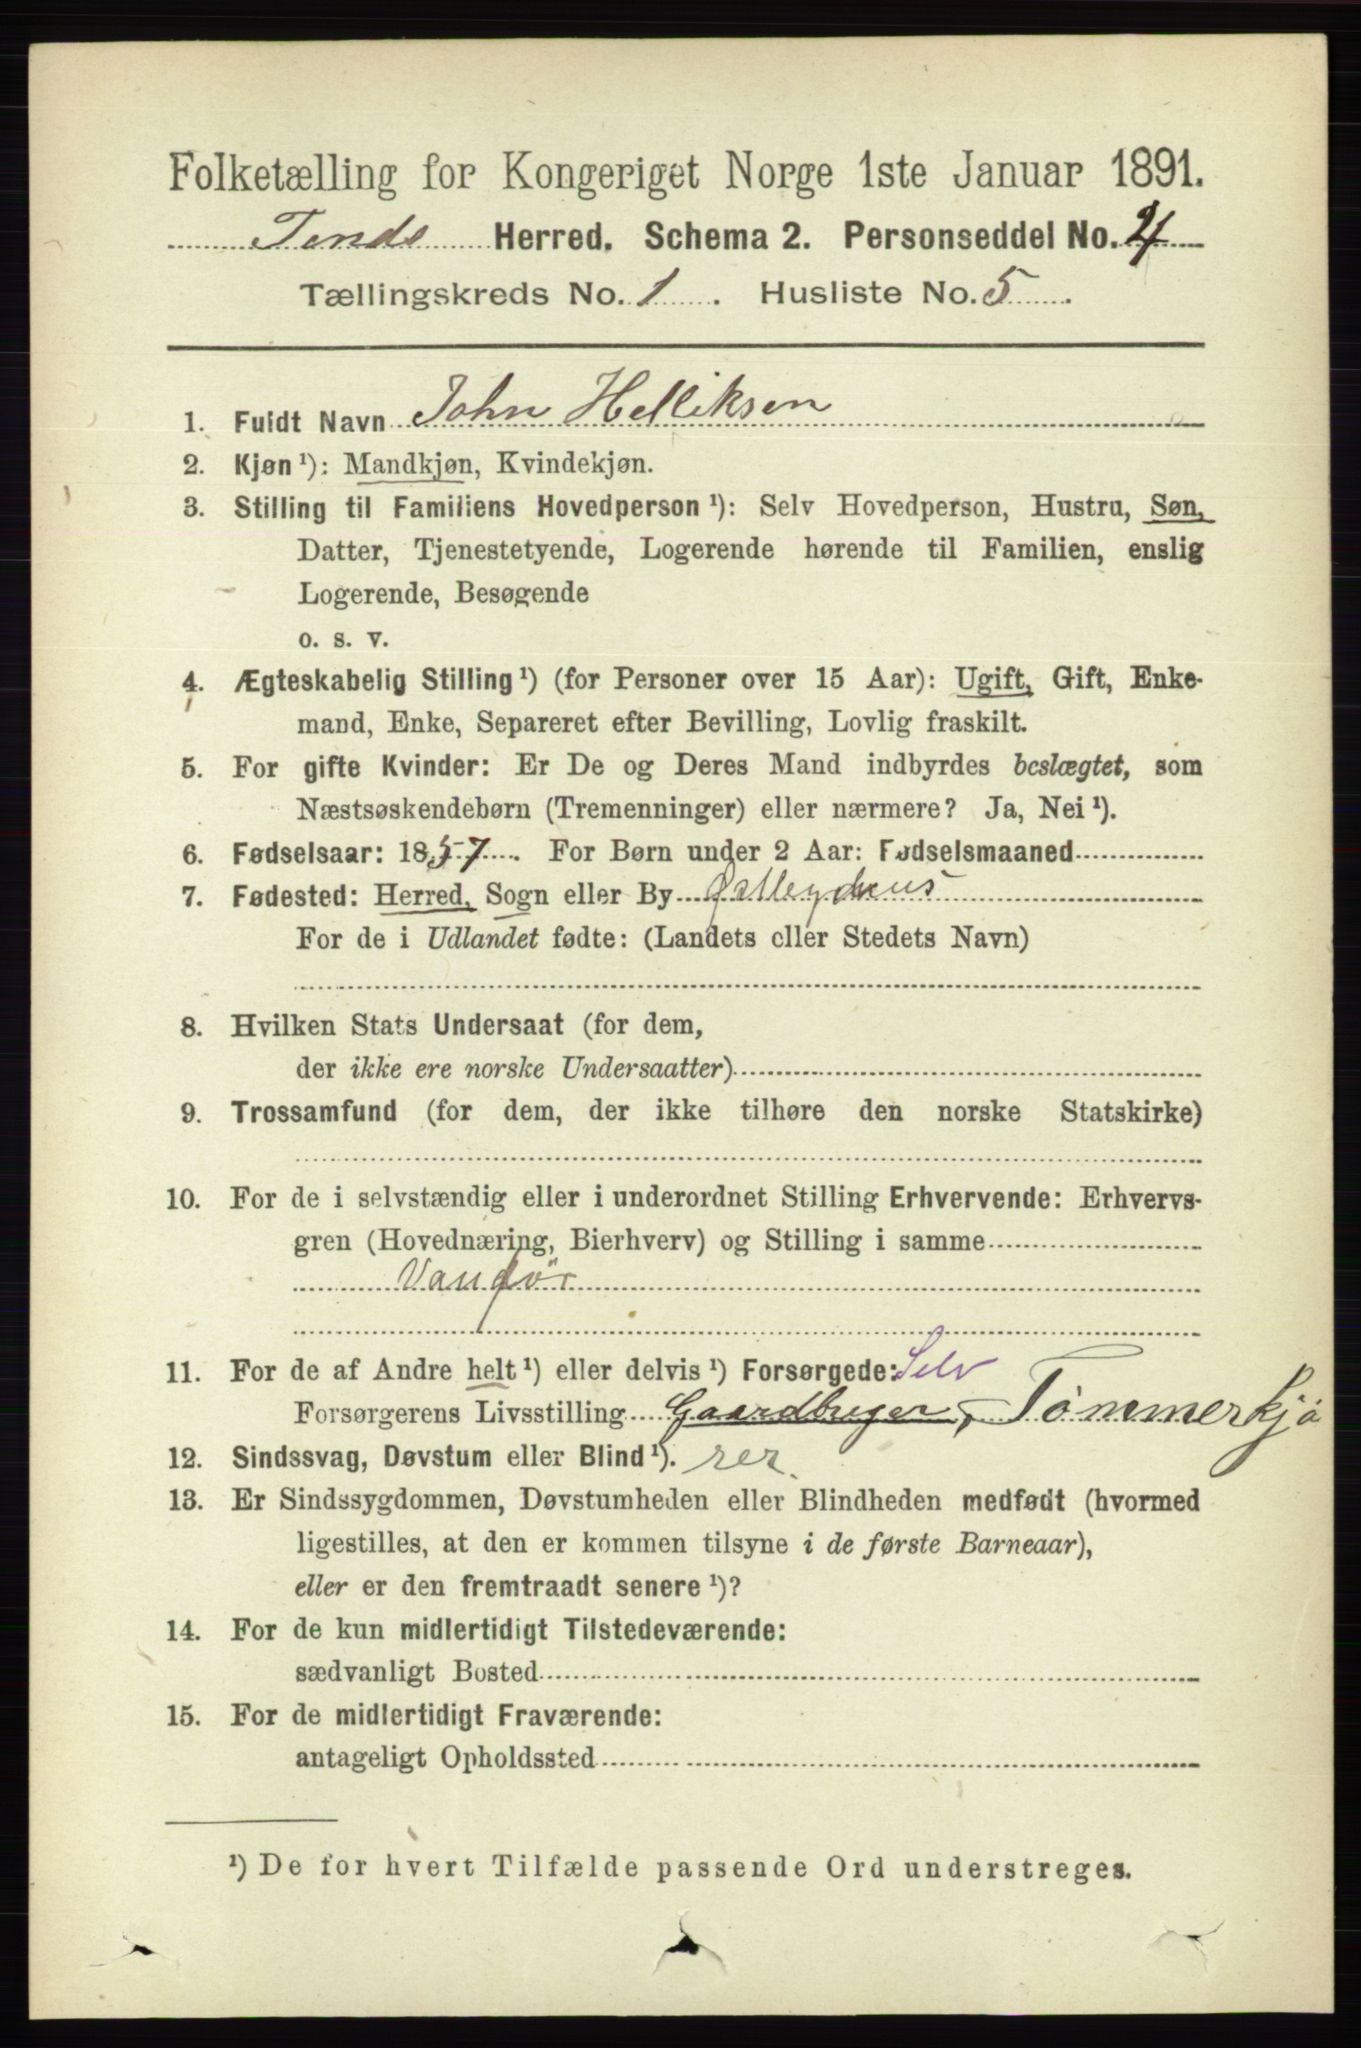 Folketælling for Kongeriget Norge 1ste Januar 1891.
Herred. Schema 2. Personseddel No. 4
Tællingskreds No. 1. Husliste No. 5.
1. Fuldt Navn John Helliksen
2. Kjøn ¹): Mandkjøn, Kvindekjøn.
3. Stilling til Familiens Hovedperson ¹): Selv Hovedperson, Hustru, Søn,
Datter, Tjenestetyende, Logerende hørende til Familien, enslig
Logerende, Besøgende
o. s. v.
4. Ægteskabelig Stilling ¹) (for Personer over 15 Aar): Ugift, Gift, Enke-
mand, Enke, Separeret efter Bevilling, Lovlig fraskilt.
5. For gifte Kvinder: Er De og Deres Mand indbyrdes beslægtet, som
Næstsøskendebørn (Tremenninger) eller nærmere? Ja, Nei ¹).
6. Fødselsaar: 1857. For Børn under 2 Aar: Fødselsmaaned
7. Fødested: Herred, Sogn eller By
For de i Udlandet fødte: (Landets eller Stedets Navn)
8. Hvilken Stats Undersaat (for dem,
der ikke ere norske Undersaatter)
9. Trossamfund (for dem, der ikke tilhøre den norske Statskirke)
10. For de i selvstændig eller i underordnet Stilling Erhvervende: Erhvervs-
gren (Hovednæring, Bierhverv) og Stilling i samme
11. For de af Andre helt ¹) eller delvis ¹) Forsørgede: Selv
Forsørgerens Livsstilling Gaardbruger, Tømmerkjø
12. Sindssvag, Døvstum eller Blind ¹). rer.
13. Er Sindssygdommen, Døvstumheden eller Blindheden medfødt (hvormed
ligestilles, at den er kommen tilsyne i de første Barneaar),
eller er den fremtraadt senere ¹)?
14. For de kun midlertidigt Tilstedeværende:
sædvanligt Bosted
15. For de midlertidigt Fraværende:
antageligt Opholdssted
¹) De for hvert Tilfælde passende Ord understreges.